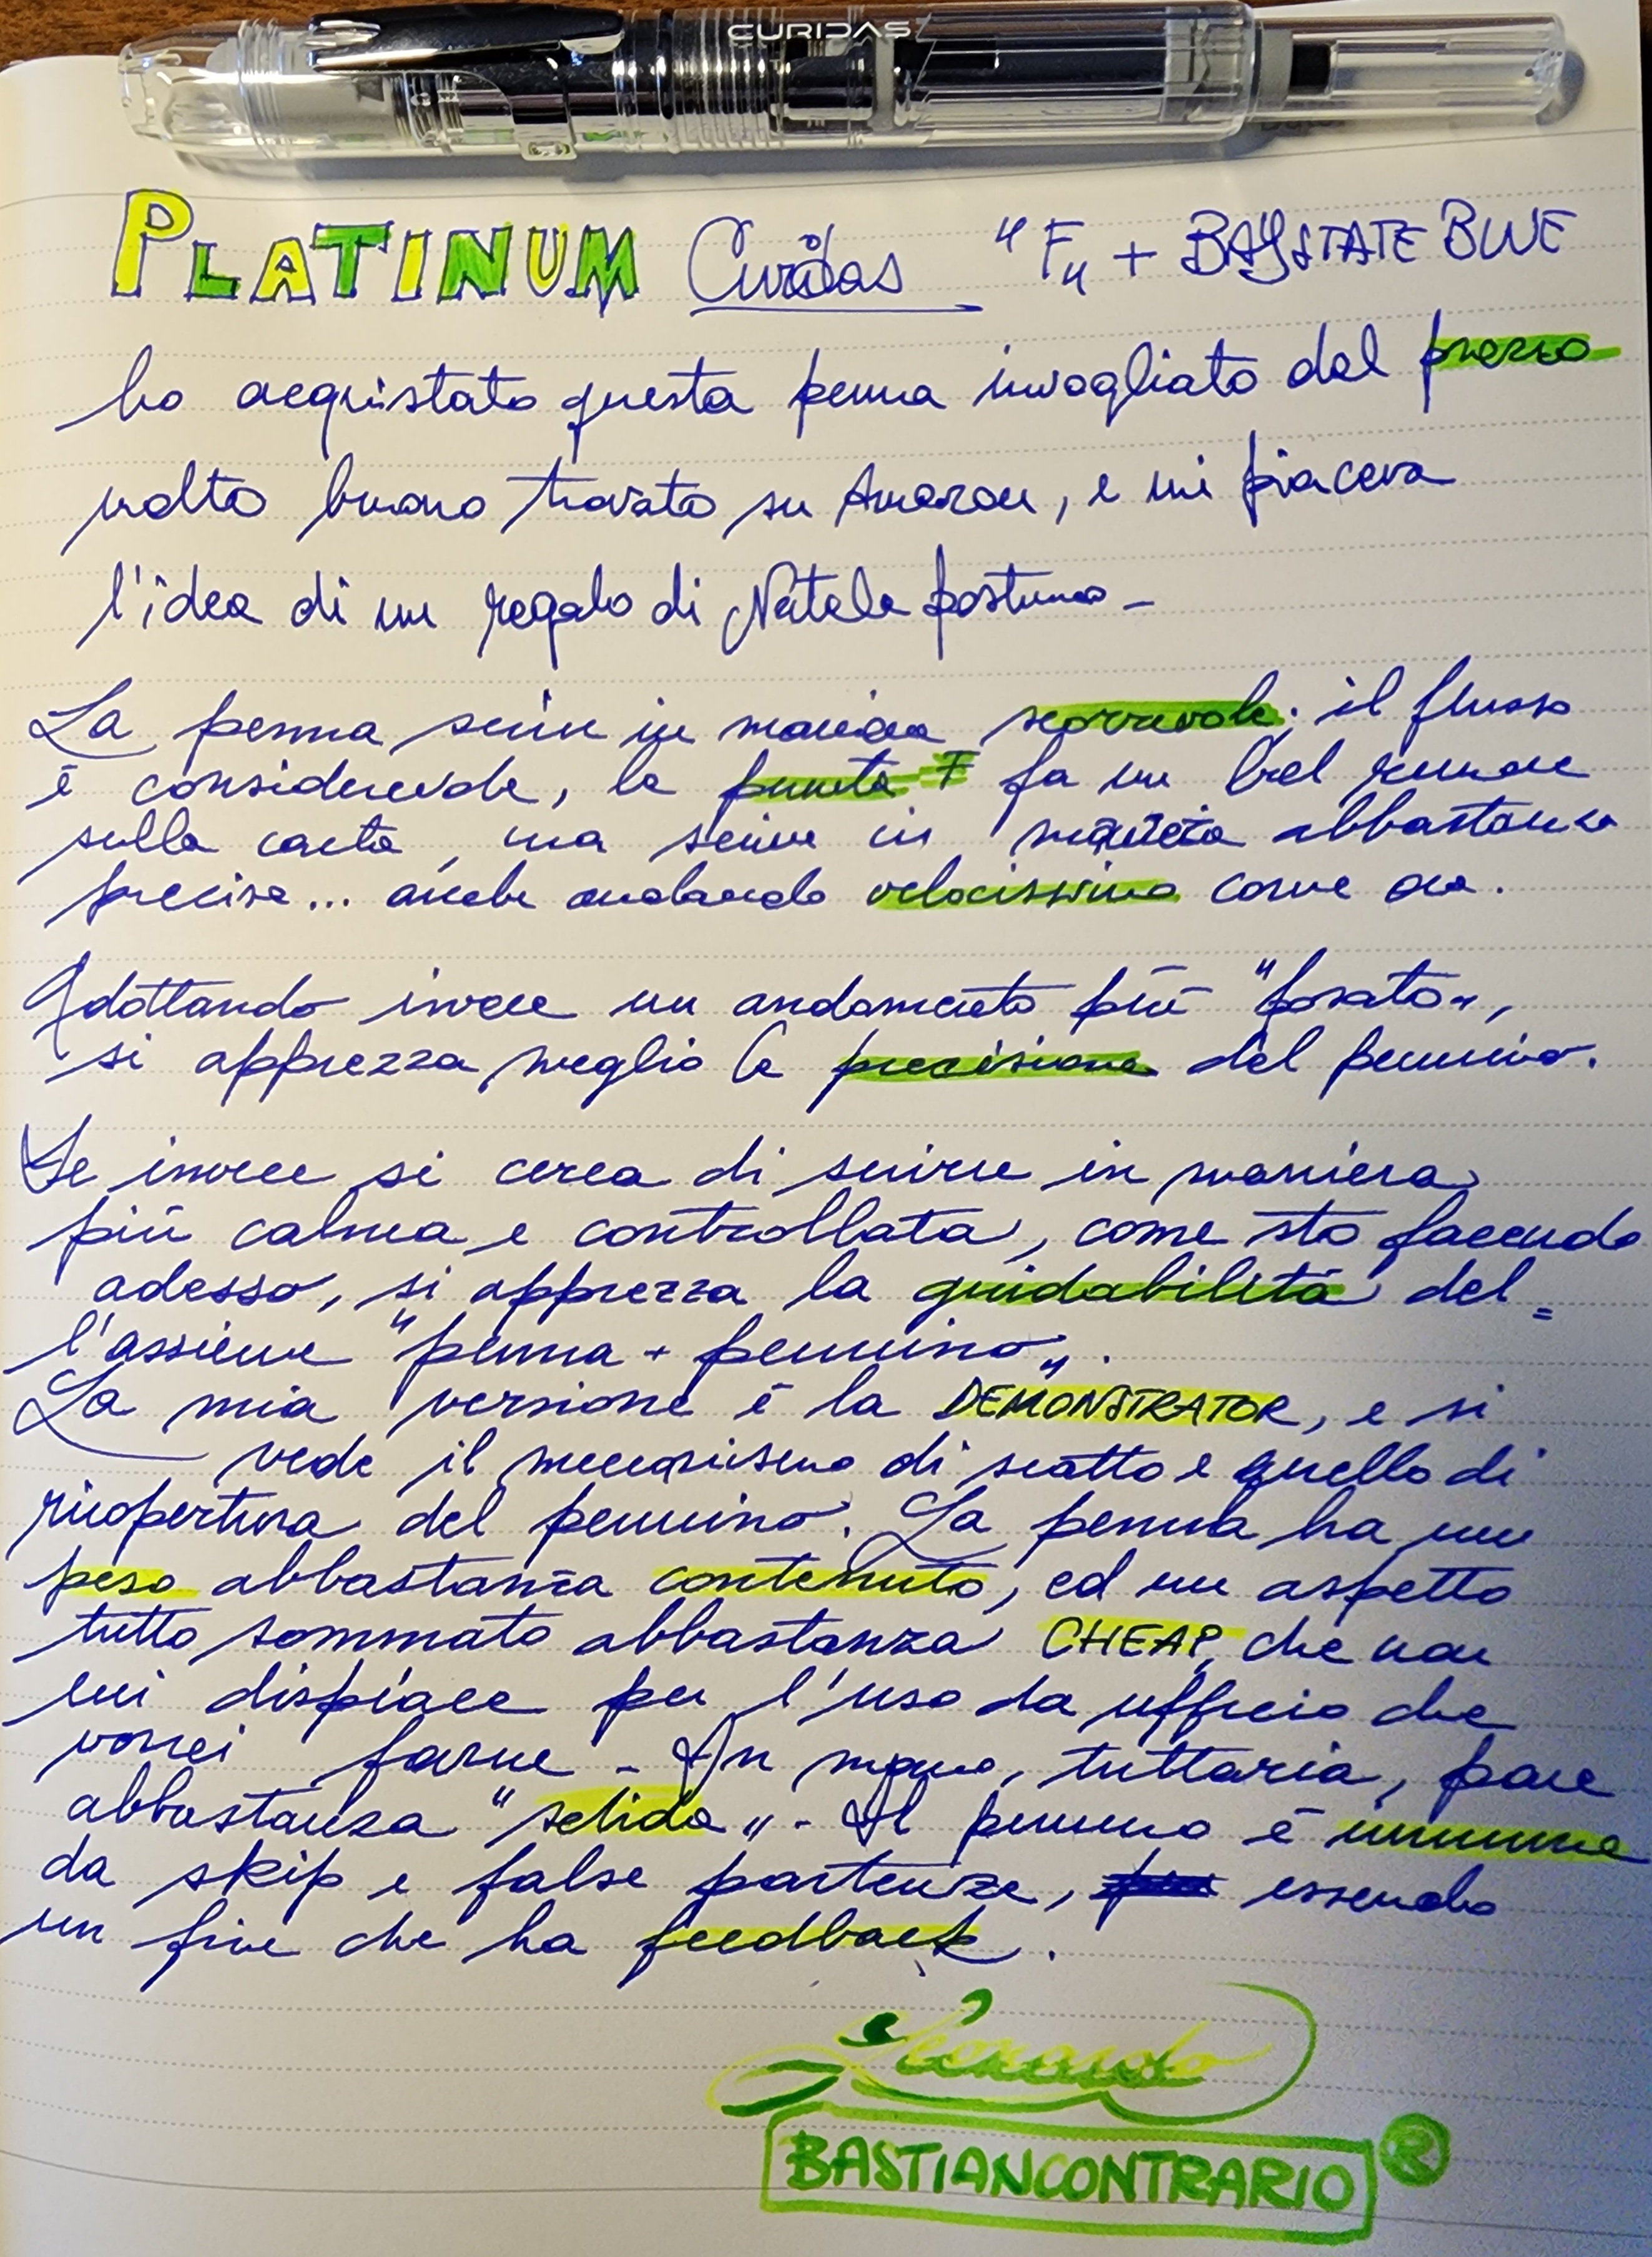 CURIDAS
PLATINUM Curidas "F" + BAYSTATE BLUE
ho acquistato questa penna invogliato dal prezzo
molto buono trovato su Amazon, e mi piaceva
l'idea di un regalo di Natale postumo -
La penna scrive in maniera scorrevole; il flusso
è considerevole, la punta F fa un bel rumore
sulla carta, ma scrive in maniera abbastanza
precisa... anche andando velocissimo come ora.
Adottando invece un andamento più "posato",
si apprezza meglio la precisione del pennino.
Se invece si cerca di scrivere in maniera
più calma e controllata, come sto facendo
adesso, si apprezza la guidabilità del=
l'assieme "penna + pennino".
La mia versione è la DEMONSTRATOR, e si
vede il meccanismo di scatto e quello di
ricopertura del pennino. La penna ha un
peso abbastanza contenuto, ed un aspetto
tutto sommato abbastanza CHEAP, che non
mi dispiace per l'uso da ufficio che
vorrei farne - In mano, tuttavia, pare
abbastanza "solida" - Il pennino è immune
da skip e false partenze, essendo
un fine che ha feedback.
Leonardo
BASTIANCONTRARIO ®